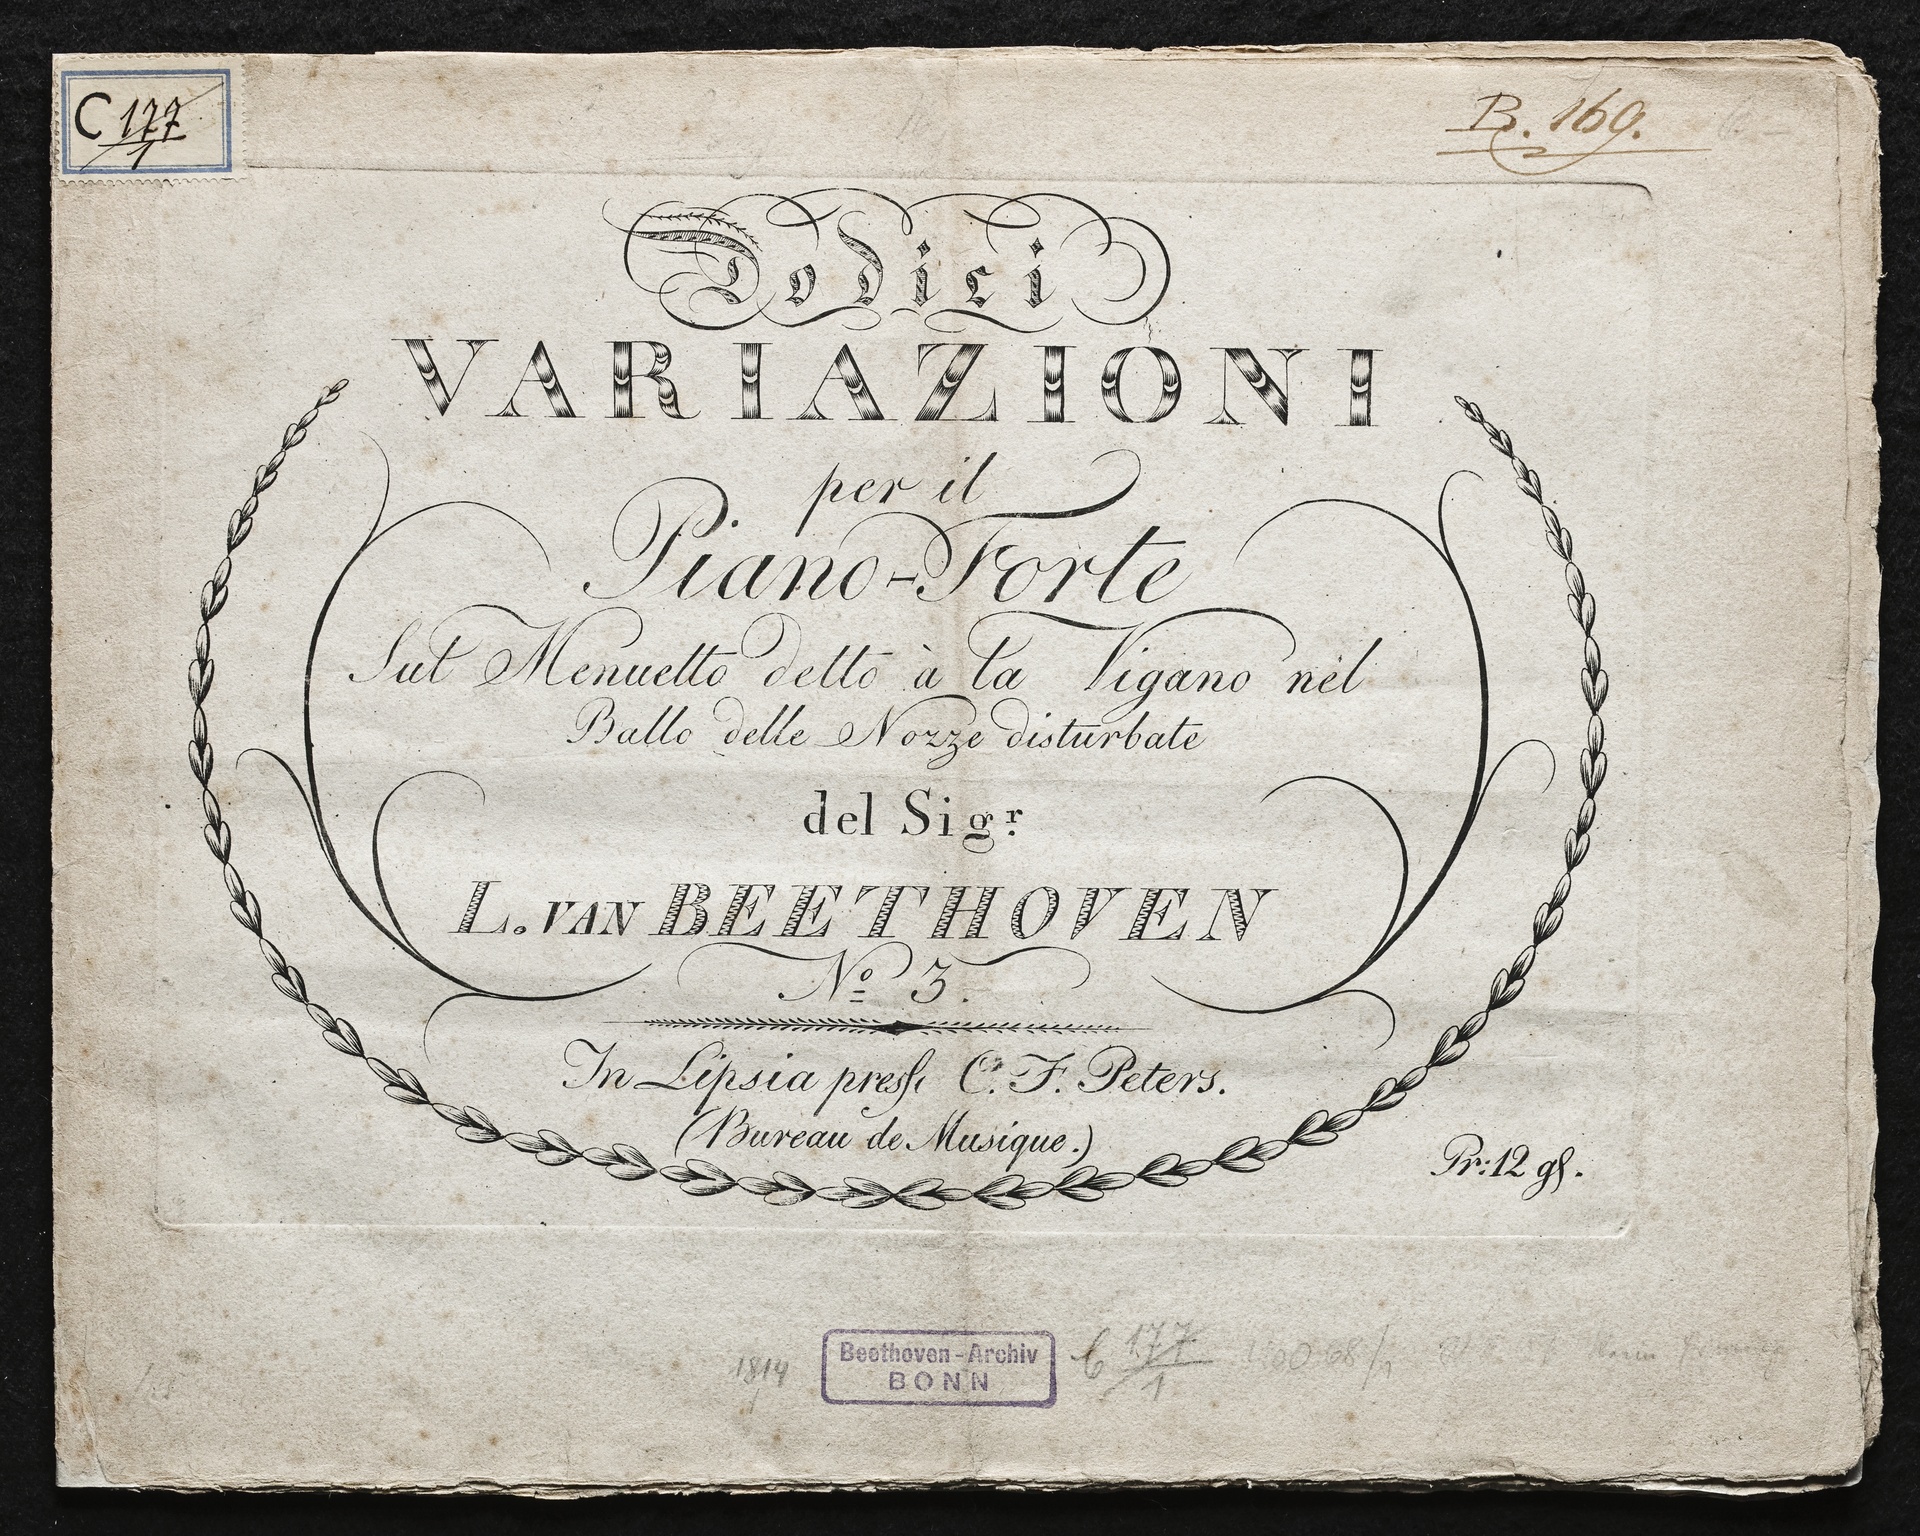 C 177
1
B. 169.
Dodici
VARIAZIONI
per il
Piano-Forte
Sul Menuetto detto à la Vigano nel
Ballo delle Nozze disturbate
del Sigr.
L. VAN BEETHOVEN
No 3.
In Lipsia presso C. F. Peters.
(Bureau de Musique.)
Pr: 12 gl.
1814
Beethoven-Archiv
BONN
C 177
1